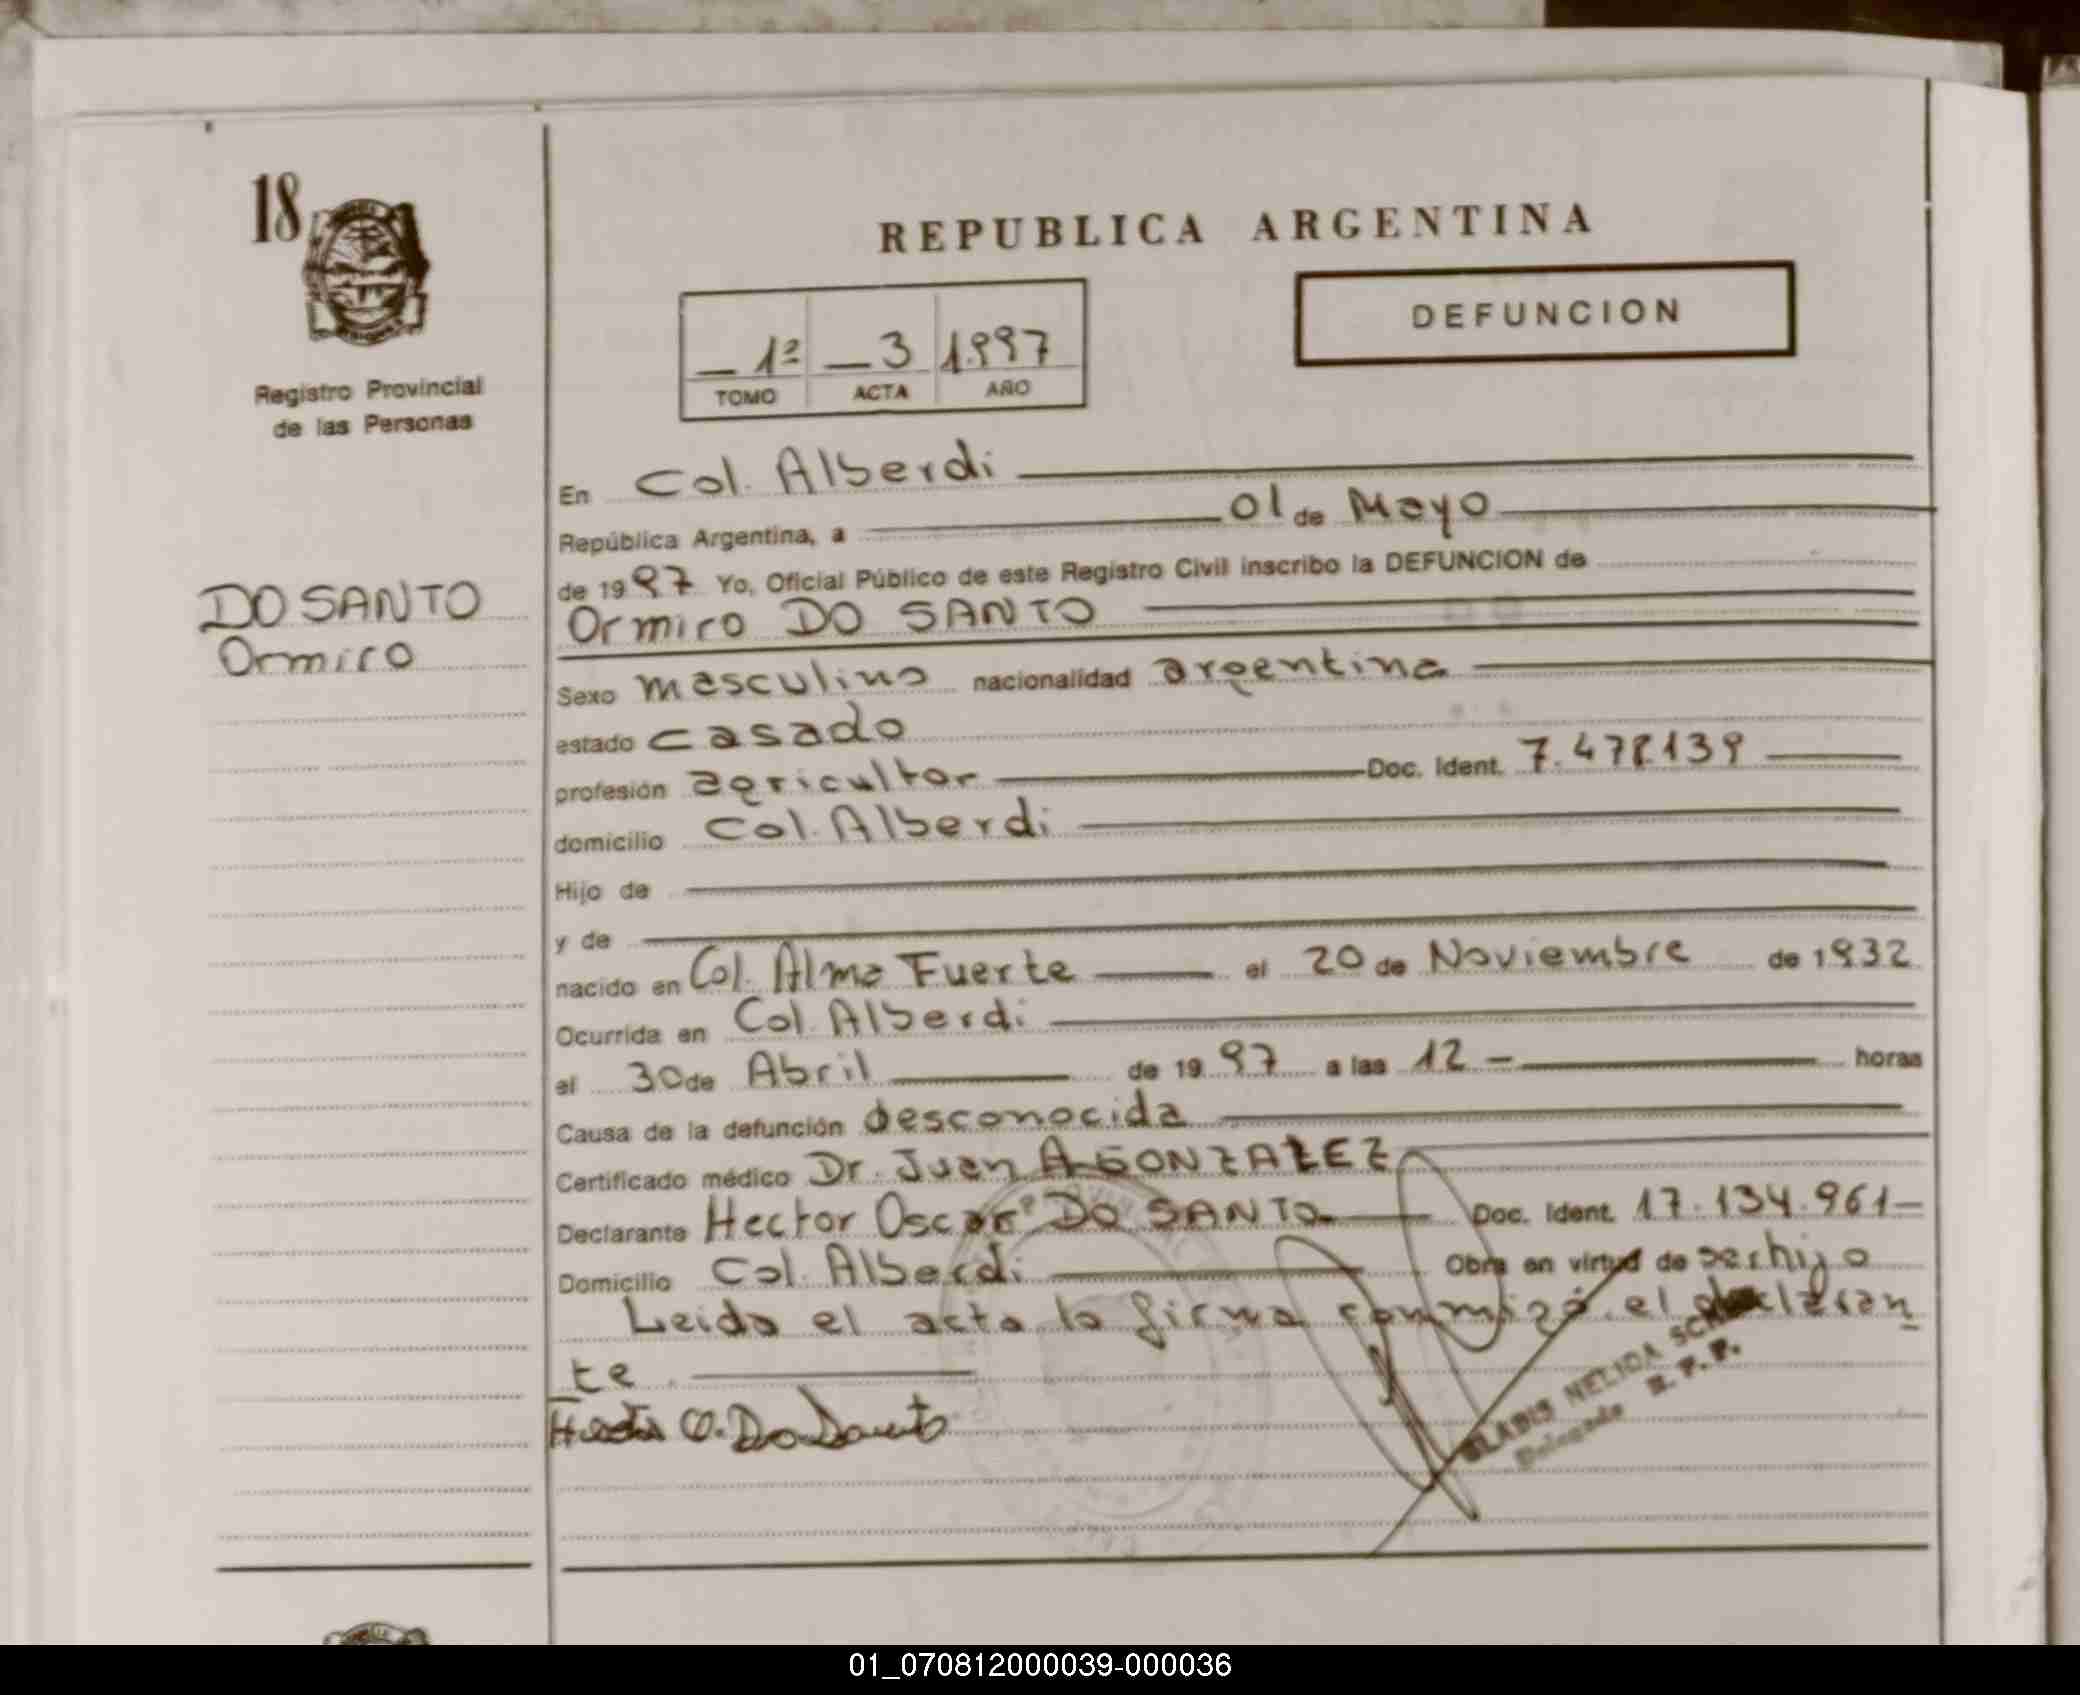 18
Registro Provincial
de las Personas
REPUBLICA ARGENTINA
1º 3 1.997
TOMO ACTA AÑO
DEFUNCION
DO SANTO
Ormiro
En Col. Alberdi
República Argentina, a 01 de Mayo
de 1997 Yo, Oficial Público de este Registro Civil inscribo la DEFUNCION de
Ormiro DO SANTO
Sexo masculino nacionalidad argentina
estado casado
profesión agricultor Doc. Ident. 7.478.139
domicilio Col. Alberdi
Hijo de
y de
nacido en Col. Alma Fuerte el 20 de Noviembre de 1932
Ocurrida en Col. Alberdi
el 30 de Abril de 1997 a las 12 horas
Causa de la defunción desconocida
Certificado médico Dr. Juan A GONZALEZ
Declarante Hector Oscar DO SANTO Doc. Ident. 17.134.961
Domicilio Col. Alberdi Obra en virtud de ser hijo
Leida el acta la firma conmigo el declaran
te
Hector O. Do Santo
GLADIS NELIDA
Delegada R. P. P.
01_070812000039-000036